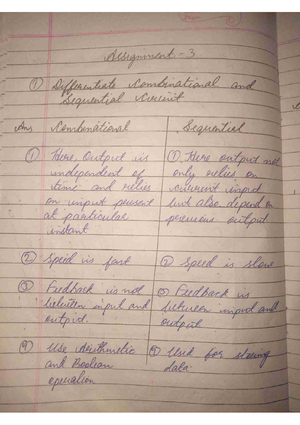 Assignment - 3
① Differentiate Combinational and
Sequential Circuit
Ans Combinational
Sequential
① Here, Output is
independent of
time and relies
on input present
at particular
instant
① Here output not
only relies on
current input
but also depend on
previous output.
② Speed is fast
② Speed is slow
③ Feedback is not
between input and
output.
③ Feedback is
between input and
output
④ Use Arithmetic
and Boolean
operation
④ Used for storing
data.